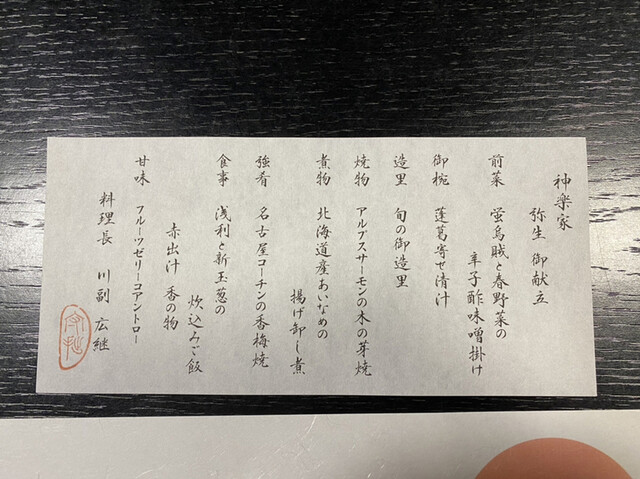 神楽家
弥生 御献立
前菜 蛍烏賊と春野菜の
辛子酢味噌掛け
御椀 蓬葛寄せ清汁
造里 旬の御造里
焼物 アルプスサーモンの木の芽焼
煮物 北海道産あいなめの
揚げ卸し煮
強肴 名古屋コーチンの香梅焼
食事 浅利と新玉葱の
炊込みご飯
赤出汁 香の物
甘味 フルーツゼリーコアントロー
料理長 川副 広継